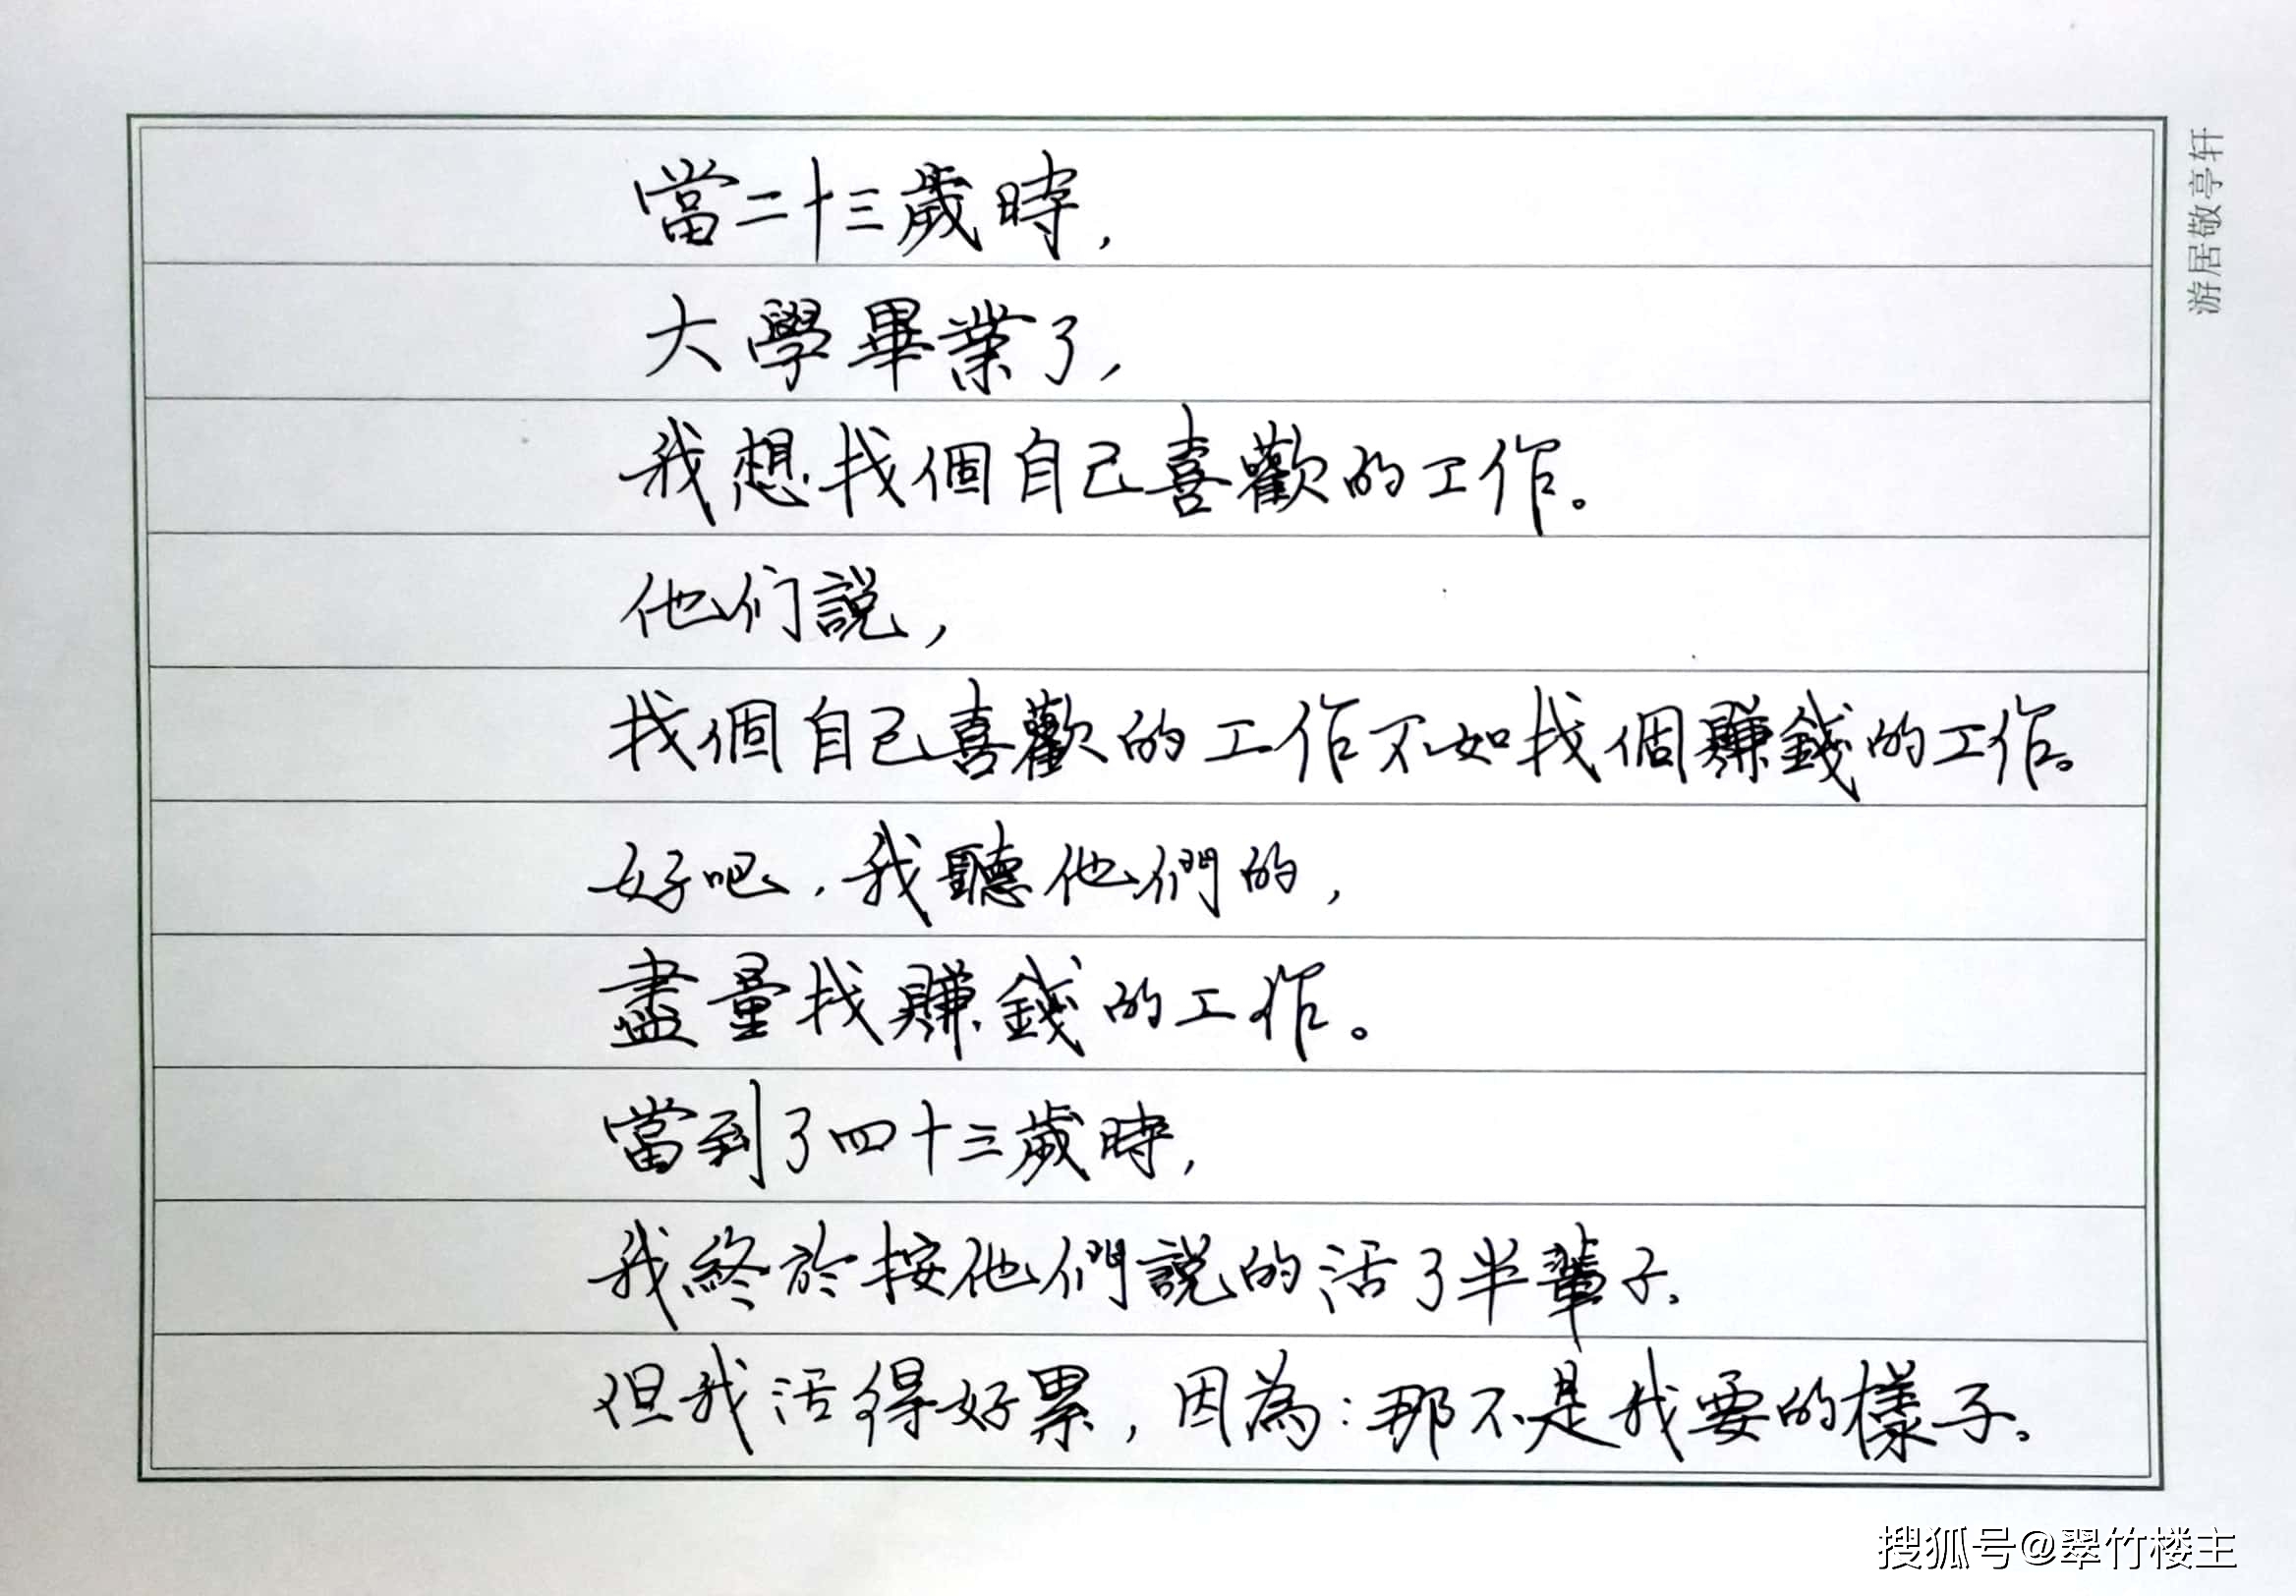 當二十三歲時,
大學畢業了,
我想找個自己喜歡的工作。
他们説,
找個自己喜歡的工作不如找個賺錢的工作。
好吧,我聽他們的,
盡量找賺錢的工作。
當到了四十三歲時,
我終於按他們説的活了半輩子.
但我活得好累,因為:那不是我要的樣子。
游居敬亭轩
搜狐号@翠竹楼主